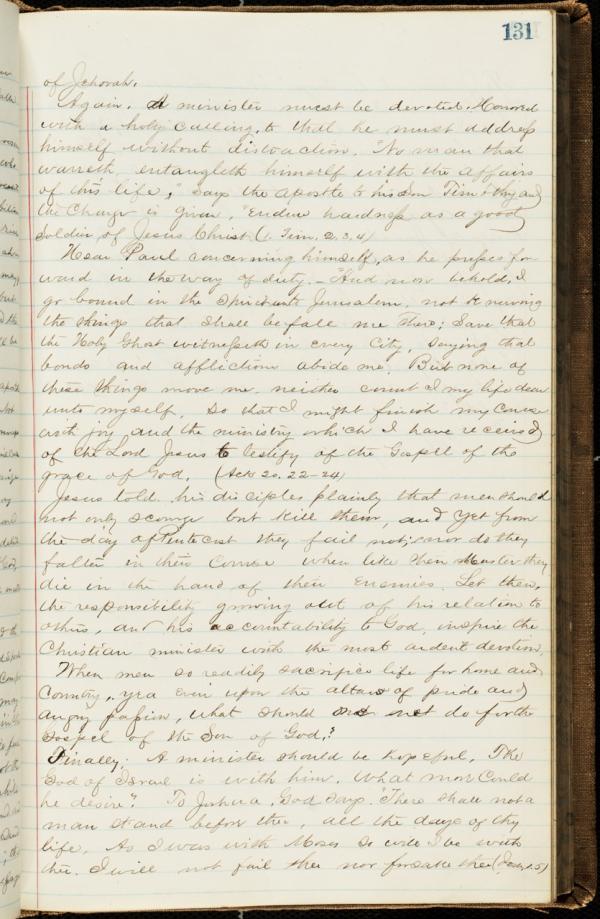 131
of Jehovah.
Again. A minister must be devoted. Honored
with a holy calling, to that he must address
himself without distraction. "No man that
warreth, entangleth himself with the affairs
of this life," says the apostle to his son Timothy and
the Charge is given, "Endure hardness as a good
Soldier of Jesus Christ (1. Tim. 2, 3, 4)
Hear Paul concerning himself, as he presses for
ward in the way of duty. - "And now behold, I
go bound in the Spirit unto Jerusalem, not knowing
the things that shall befall me there; Save that
the Holy Ghost witnesseth in every City, saying that
bonds and affliction abide me. But none of
these things move me, neither count I my life dear
unto myself, so that I might finish my Course
with joy, and the ministry which I have received
of the Lord Jesus to testify of the Gospel of the
grace of God. (Acts 20, 22-24)
Jesus told his disciples plainly that men should
not only scourge but kill them, and yet from
the day of Pentecost they fail not; nor do they
falter in their Course when like their Master they
die in the hand of their Enemies. Let then,
the responsibility growing out of his relation to
others, and his accountability to God, inspire the
Christian minister with the most ardent devotion.
When men so readily sacrifice life for home and
Country, yea even upon the altars of pride and
angry passion, what should not do for the
Gospel of the Son of God?
Finally. A minister should be hopeful. The
God of Israel is with him. What more Could
he desire? To Joshua, God says. "There shall not a
man stand before thee, all the days of thy
life. As I was with Moses so will I be with
thee. I will not fail thee nor forsake thee (Josh, 1.5)